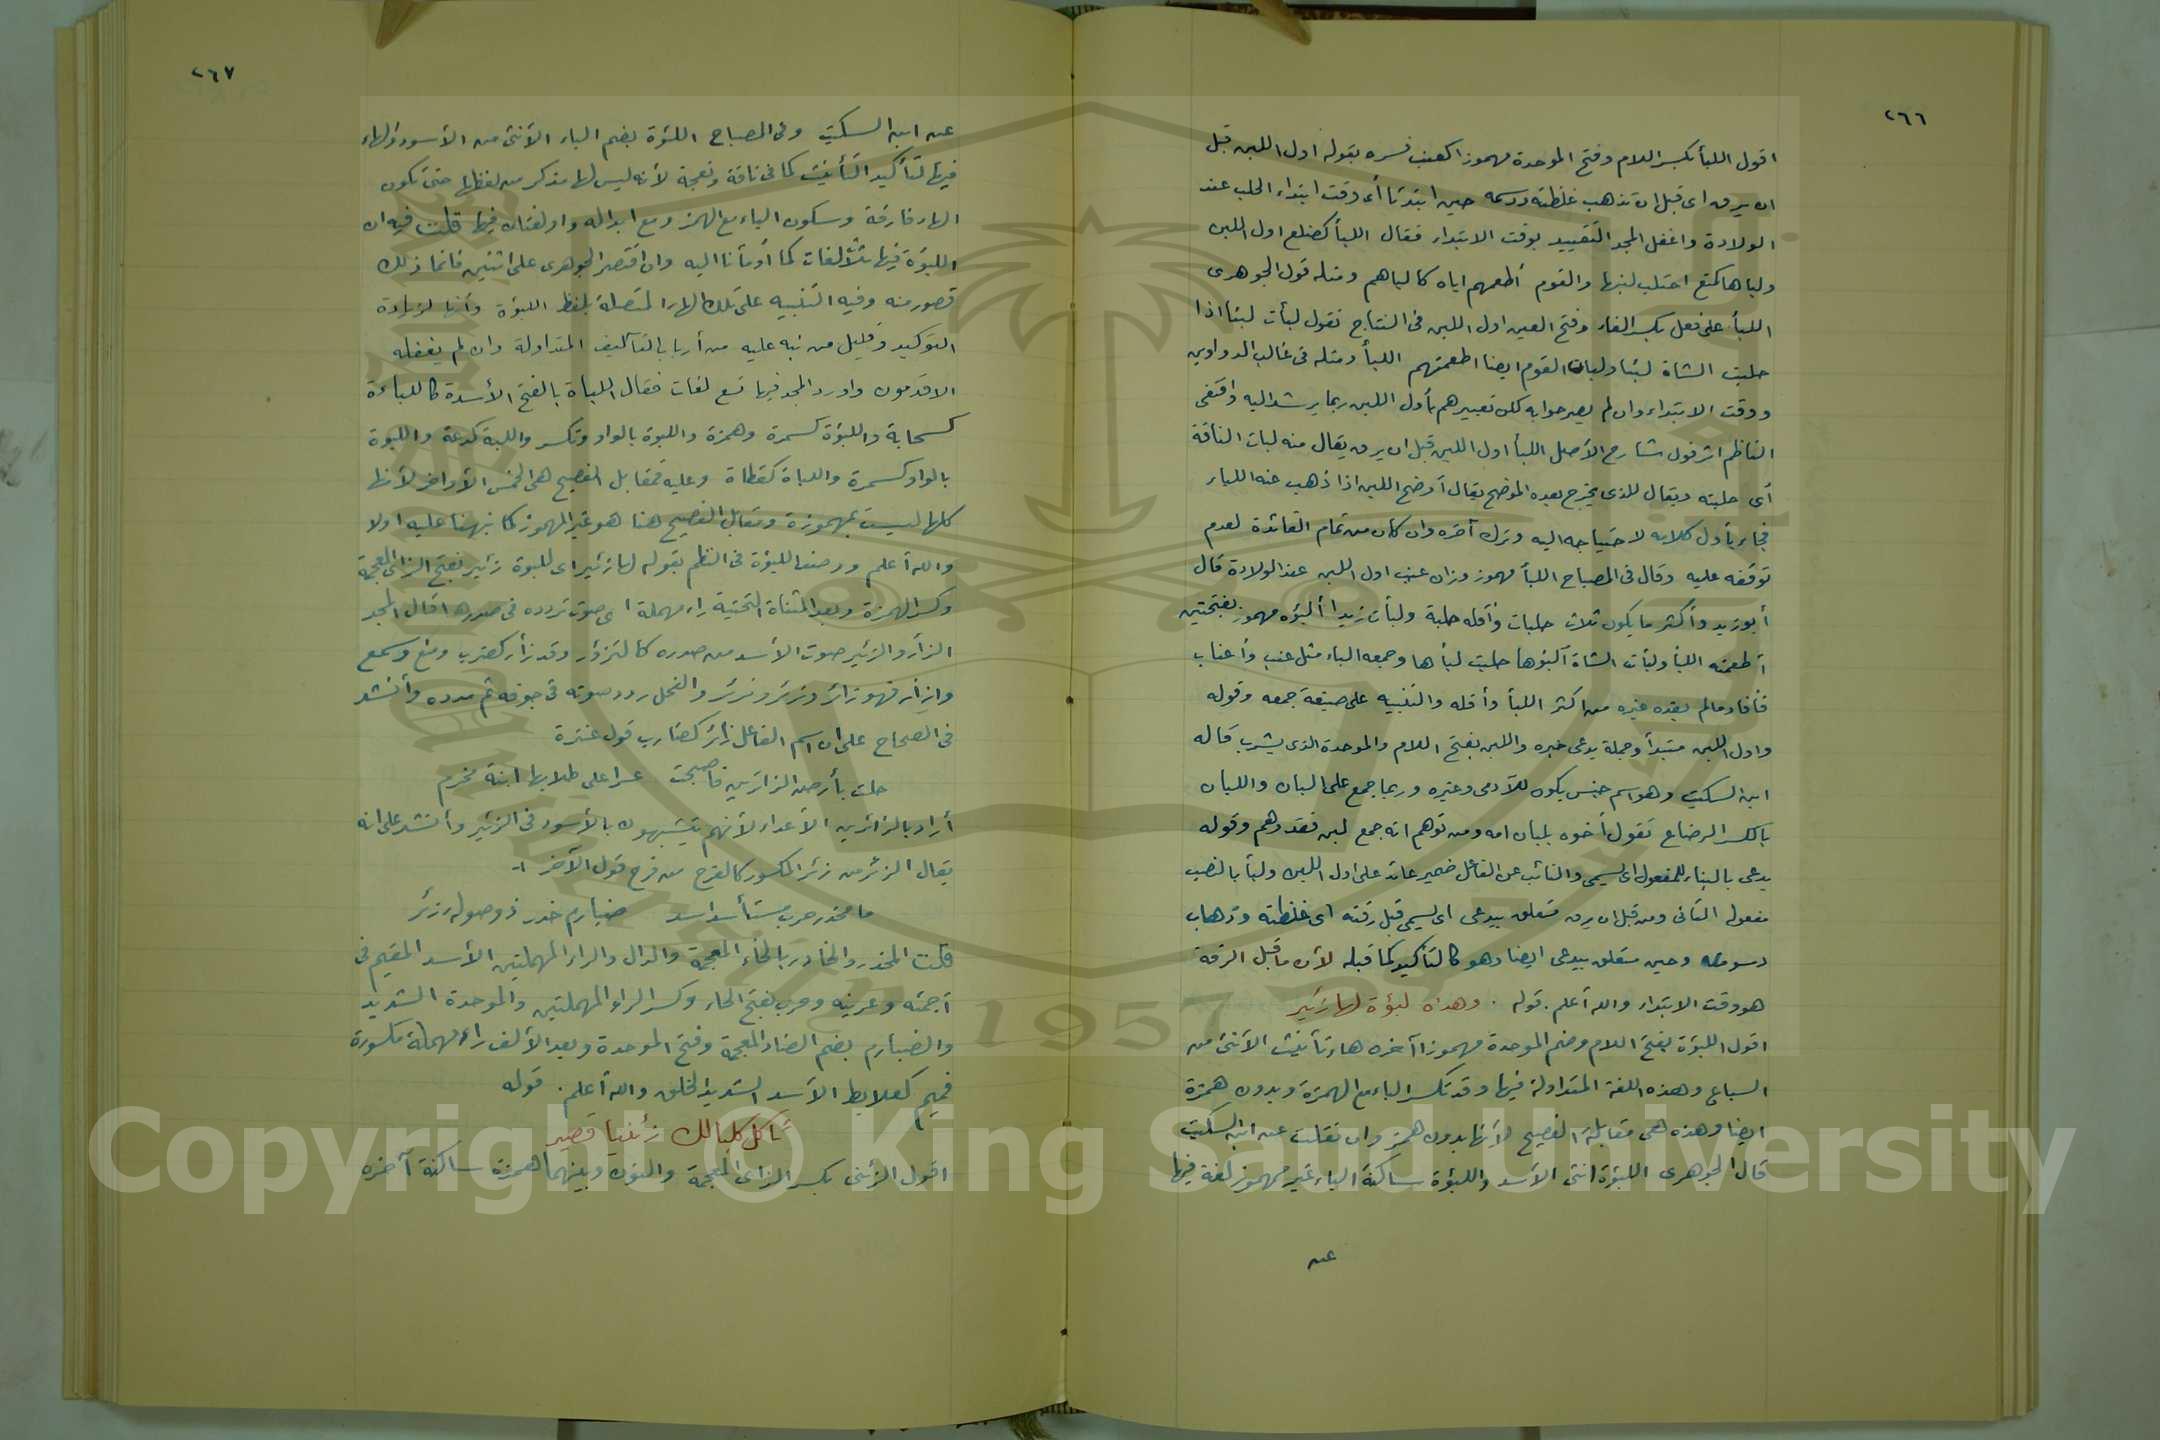 ٢٦٦
اقول اللبأ بكسر اللام وفتح الموحدة مهموزا كعنب فسره بقوله اول اللبن قبل
ان يرق اى قبل ان تذهب غلظته ودسمه حين ابتدتا أى وقت ابتداء الحلب عند
الولادة واغفل المجد التقييد بوقت الابتداء فقال اللبأ كضلع اول اللبن
ولباها كمنع احتلب لبنها والقوم أطعمهم اياه كالباهم ومثله قول الجوهرى
اللبأ على فعل بكسر الفاء وفتح العين اول اللبن فى النتاج تقول لبأت لبئا اذا
حلبت الشاة لبئا ولبات القوم ايضا اطعمتهم اللبأ ومثله فى غالب الدواوين
ووقت الابتداء وان لم يصرحوا به لكن تعبيرهم بأول اللبن ربما يرشد اليه واقتفى
الناظم اثر قول شارح الأصل اللبأ اول اللبن قبل ان يرق يقال منه لبات الناقة
أى حلبته ويقال للذى يخرج بعده الموضح يقال أوضح اللبن اذا ذهب عنه اللباء
فجاء بأول كلامه لاحتياجه اليه وترك آخره وان كان من تمام الفائدة لعدم
توقفه عليه وقال فى المصباح اللبأ مهموز وزان عنب اول اللبن عند الولادة قال
أبوزيد وأكثر ما يكون ثلاث حلبات وأقله حلبة ولبأت زيدا ألبؤه مهموز بفتحتين
أطعمته اللبأ ولبأت الشاة ألبؤها حلبت لبأها وجمعه الباء مثل عنب وأعناب
فأفاد مالم يفده غيره من اكثر اللبأ وأقله والتنبيه على صيغة جمعه وقوله
واول اللبن مبتدأ وجملة يدعى خبره واللبن بفتح اللام والموحدة الذى يشرب قاله
ابن السكيت وهو اسم جنس يكون للآدمى وغيره وربما جمع على البان واللبان
بالكسر الرضاع تقول أخوه بلبان امه ومن توهم انه جمع لبن فقد وهم وقوله
يدعى بالبناء للمفعول اى يسمى والنائب عن الفاعل ضمير عائد على اول اللبن ولبأ بالنصب
مفعوله الثانى ومن قبل ان يرق متعلق بيدعى اى يسمى قبل رقته اى غلظته وذهاب
دسومته وحين متعلق بيدعى ايضا وهو كالتأكيد لما قبله لأن ما قبل الرقة
هو وقت الابتداء والله أعلم . قوله . وهذه لبؤة لها زئير
اقول اللبؤة بفتح اللام وضم الموحدة مهموزا آخره هاء تأنيث الأنثى من
السباع وهذه اللغة المتداولة فيها وقد تكسر الباء مع الهمزة وبدون همزة
ايضا وهذه هى مقابلة الفصيح لأنها بدون همز وان نقلت عن ابن السكيت
قال الجوهرى اللبؤة انثى الأسد واللبؤة ساكنة الباء غير مهموز لغة فيها
عن
٢٦٧
عن ابن السكيت وفى المصباح اللبؤة بضم الباء الأنثى من الأسود والهاء
فيها لتأكيد التأنيث كما فى ناقة ونعجة لأنه ليس لها مذكر من لفظها حتى تكون
الهاء فارقة وسكون الباء مع الهمز ومع ابداله واوا لغتان فيها قلت فيه ان
اللبؤة فيها ثلاث لغات كما أومأنا اليه وان اقتصر الجوهرى على اثنتين فانما ذلك
قصور منه وفيه التنبيه على تلك الهاء المتصلة بلفظ اللبؤة وأنها لزيادة
التوكيد وقليل من نبه عليه من أرباب التآليف المتداولة وان لم يغفله
الاقدمون واورد المجد فيها تسع لغات فقال اللباة بالفتح الأسدة كاللباءة
كسحابة واللبؤة كسمرة وهمزة واللبوة بالواو وتكسر واللبة كدعة واللبوة
بالواو كسمرة واللباة كقطاة وعليه فمقابل الفصيح هى الخمس الأواخر لأنها
كلها ليست بمهموزة ومقابل الفصيح هنا هو غير المهموز كما نبهنا عليه اولا
والله أعلم ووصف اللبؤة فى النظم بقوله لها زئير اى للبؤة زئير بفتح الزاى المعجمة
وكسر الهمزة وبعد المثناة التحتية راء مهملة اى صوت تردده فى صدرها قال المجد
الزأر والزئير صوت الأسد من صدره كالتزؤر وقد زأر كضرب ومنع وسمع
وازأر فهو زائر وزئر ومزئر والفحل ردد صوته فى جوفه ثم مدده وأنشد
فى الصحاح على ان اسم الفاعل زائر كضارب قول عنترة
حلت بأرض الزائرين فأصبحت عسرا على طلابها ابنة مخرم
أراد بالزائرين الأعداء لأنهم يتشبهون بالأسود فى الزئير وأنشد على انه
يقال الزئر من زئر المكسور كالفرح من فرح قول الآخر :ـ
ما مخدر حرب مستأسد اسد ضبارم خدر ذو صولة زئر
قلت المخدر والخادر بالخاء المعجمة والدال والراء المهملتين الأسد المقيم فى
أجمته وعرينه وحرب بفتح الحاء وكسر الراء المهملتين والموحدة الشديد
والضبارم بضم الضاد المعجمة وفتح الموحدة وبعد الألف راء مهملة مكسورة
فميم كعلابط الأسد الشديد الخلق والله أعلم . قوله
تأكل كلبا لك زئنيا قصير
اقول الزئنى بكسر الزاى المعجمة والنون وبينهما همزة ساكنة آخره
1957
Copyright © King Saud University